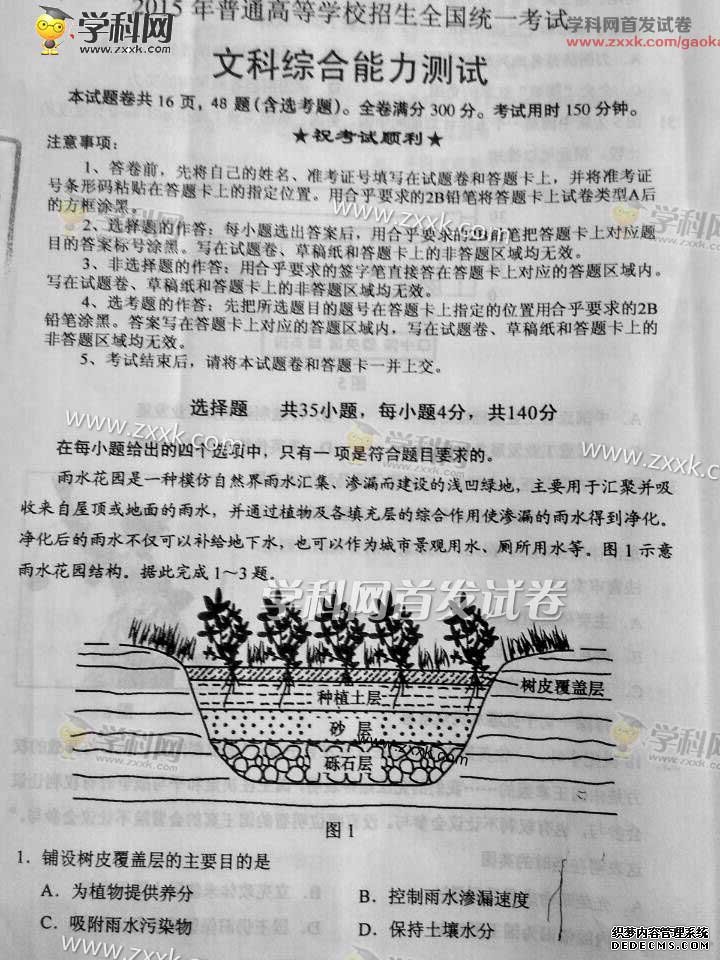 2015年普通高等学校招生全国统一考试
学科网首发试卷
www.zxxk.com/gaoka
学科网
zxxk.com
文科综合能力测试
本试题卷共16页，48题(含选考题)。全卷满分300分。考试用时150分钟。
★祝考试顺利★
注意事项：
1、答卷前，先将自己的姓名、准考证号填写在试题卷和答题卡上，并将准考证
号条形码粘贴在答题卡上的指定位置。用合乎要求的2B铅笔将答题卡上试卷类型A后
的方框涂黑。
2、选择题的作答：每小题选出答案后，用合乎要求的2B铅笔把答题卡上对应题
目的答案标号涂黑。写在试题卷、草稿纸和答题卡上的非答题区域均无效。
3、非选择题的作答：用合乎要求的签字笔直接答在答题卡上对应的答题区域内。
写在试题卷、草稿纸和答题卡上的非答题区域均无效。
4、选考题的作答：先把所选题目的题号在答题卡上指定的位置用合乎要求的2B
铅笔涂黑。答案写在答题卡上对应的答题区域内，写在试题卷、草稿纸和答题卡上的
非答题区域均无效。
5、考试结束后，请将本试题卷和答题卡一并上交。
选择题 共35小题，每小题4分，共140分
www.zxxk.com
学科网
www.zxxk.com
在每小题给出的四个选项中，只有一项是符合题目要求的。
雨水花园是一种模仿自然界雨水汇集、渗漏而建设的浅凹绿地，主要用于汇聚并吸
收来自屋顶或地面的雨水，并通过植物及各填充层的综合作用使渗漏的雨水得到净化。
净化后的雨水不仅可以补给地下水，也可以作为城市景观用水、厕所用水等。图1示意
雨水花园结构。据此完成1～3题。
学科网首发试卷
树皮覆盖层
种植土层
砂层
www.zxxk.com
砾石层
学科网
zxxk.com
学科网
zxxk.com
图1
1．铺设树皮覆盖层的主要目的是
A．为植物提供养分
B．控制雨水渗漏速度
C．吸附雨水污染物
D．保持土壤水分
www.zxxk.com
学科网
织梦内容管理系统
DEDECMS.COM